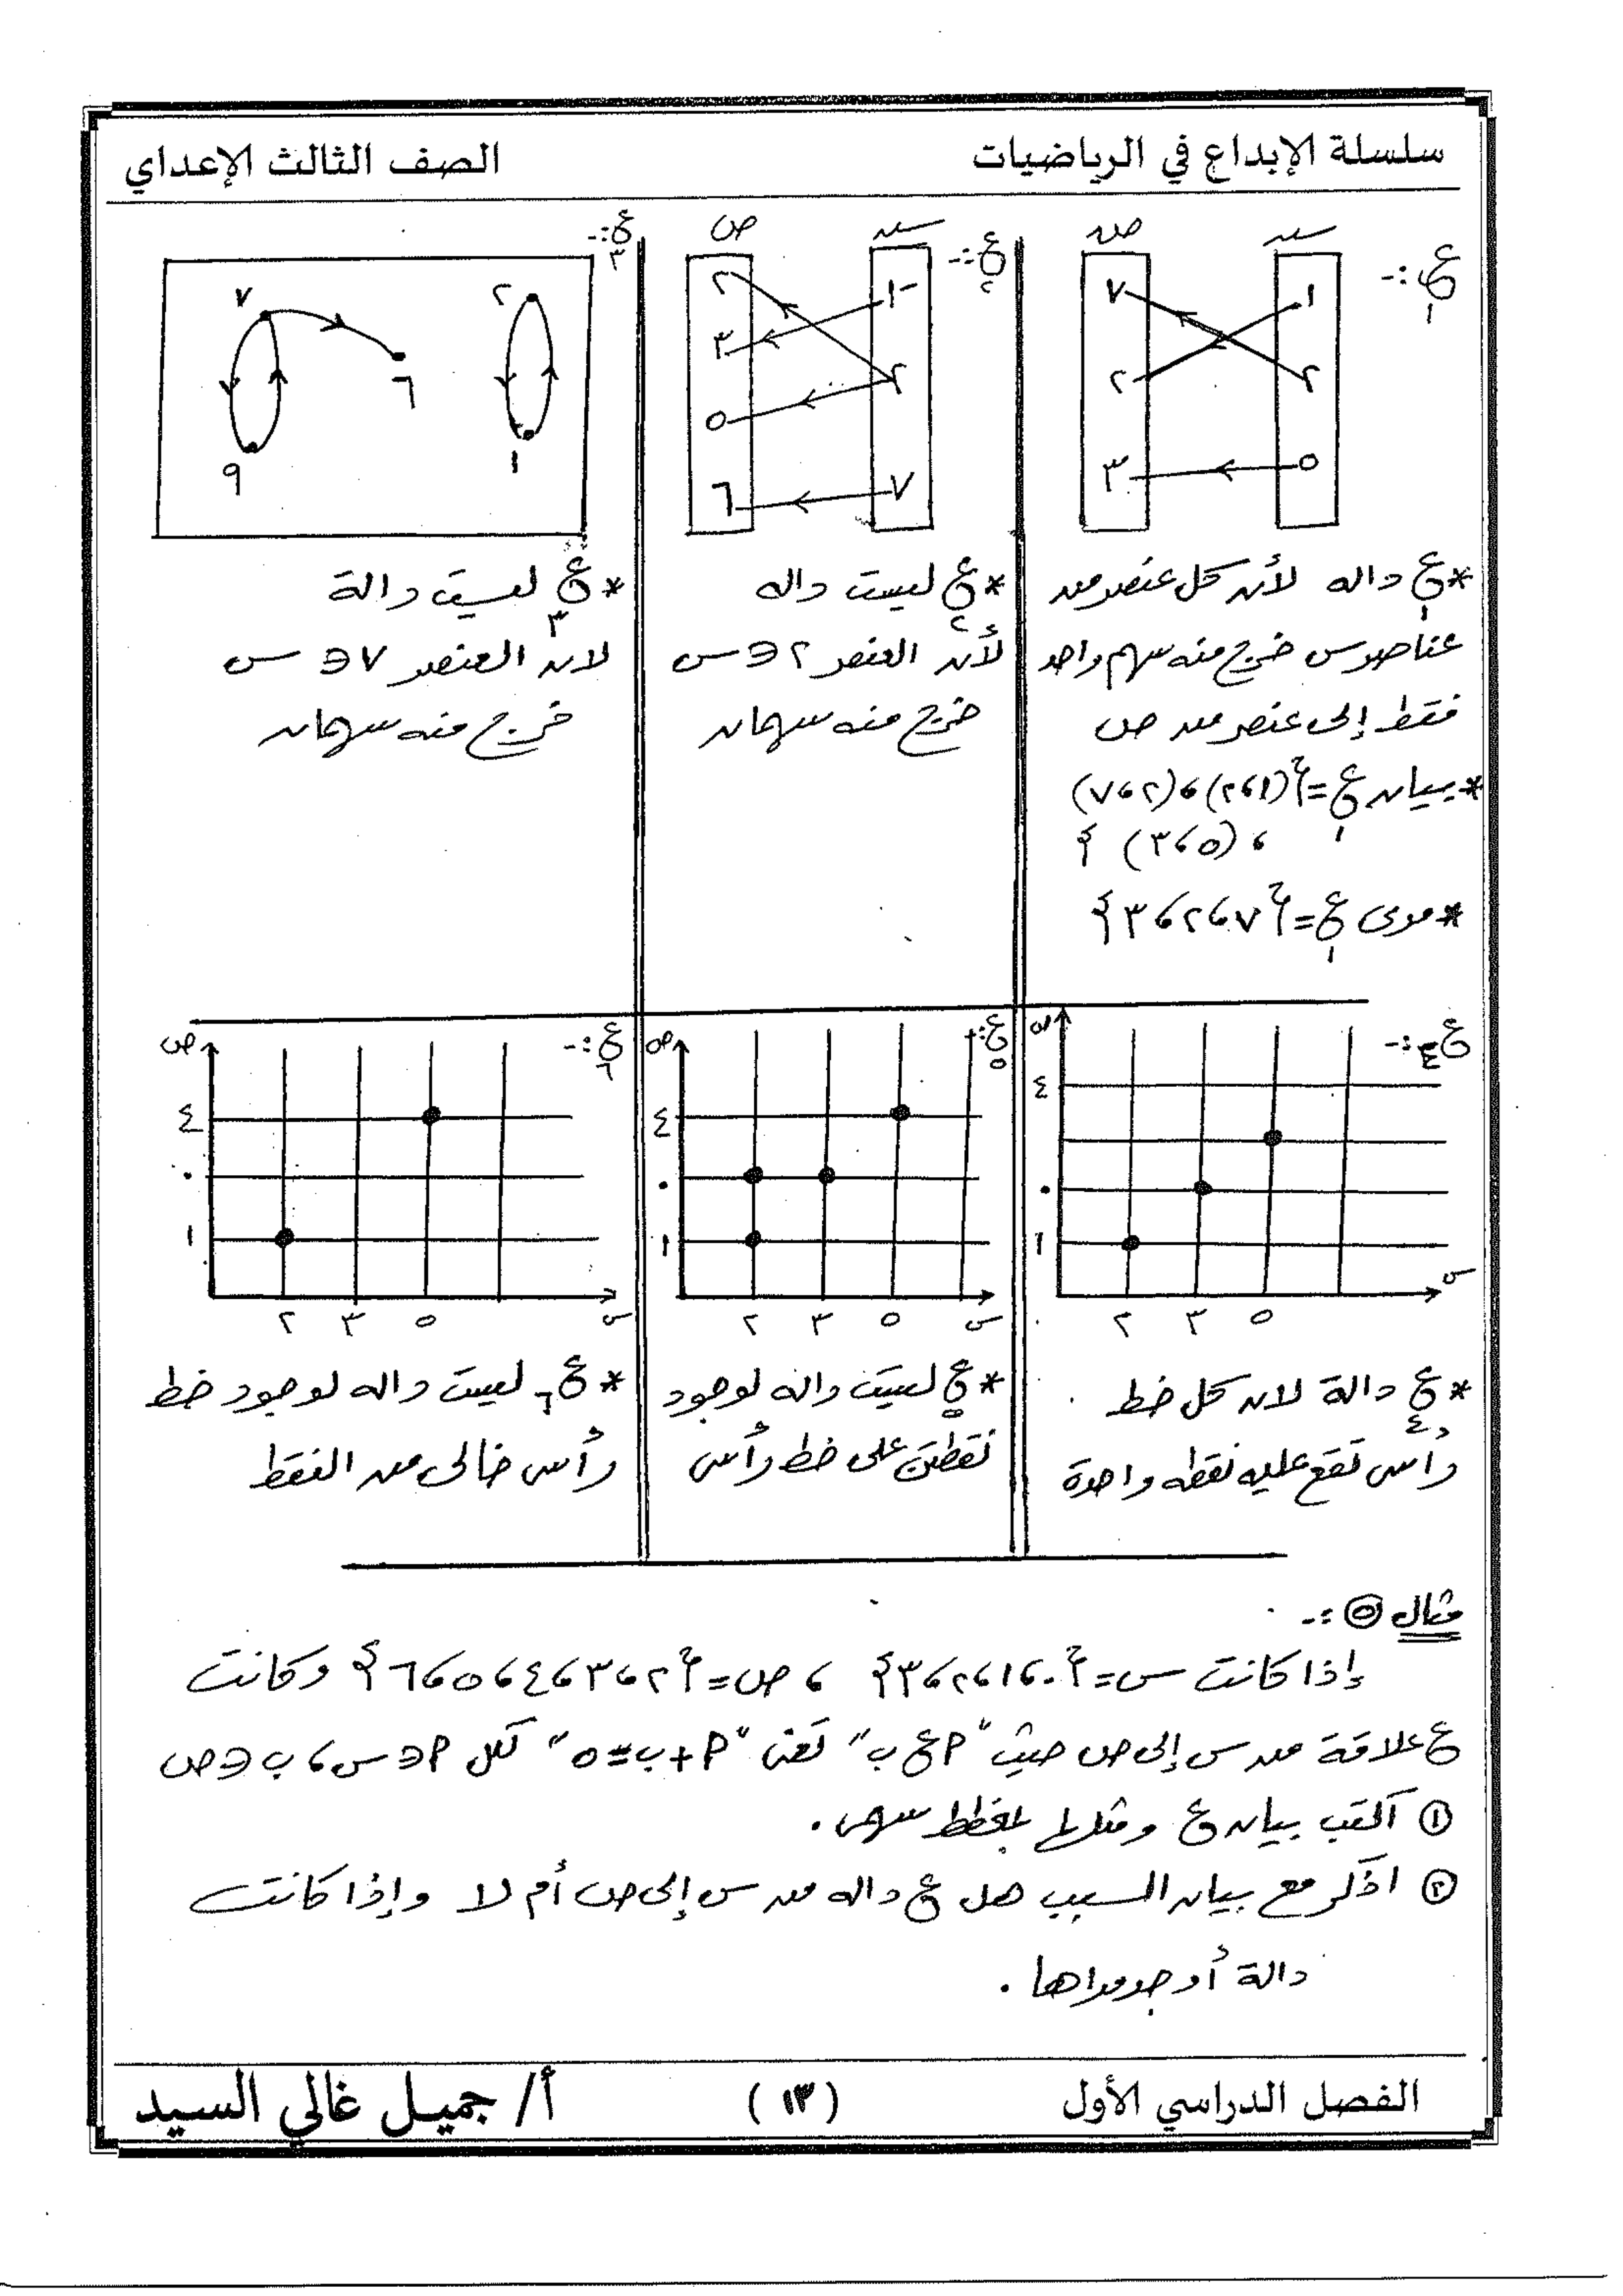 سلسلة الإبداع في الرياضيات
الصف الثالث الإعداي
ع١ :-
س
ص
١
٢
٥
٧
٢
٣
* ع١ داله لأن كل عنصر من
عناصر س خرج منه سهم واحد
فقط إلى عنصر من ص
* بيان ع١ = {(١، ٢)، (٢، ٧)
، (٥، ٣)}
* مدى ع١ = {٧، ٢، ٣}
ع٢ :-
س
ص
-١
٢
٧
٢
٣
٥
٦
* ع٢ ليست داله
لأن العنصر ٢ ∈ س
خرج منه سهمان
ع٣ :-
٢
١
٧
٦
٩
* ع٣ ليست دالة
لان العنصر ٧ ∈ س
خرج منه سهمان
ع٤ :-
ص
٤
٠
١
٢ ٣ ٥
س
* ع٤ دالة لان كل خط
رأسى تقع عليه نقطه واحدة
ع٥ :-
ص
٤
٠
١
٢ ٣ ٥
س
* ع٥ ليست داله لوجود
نقطتين على خط رأسى
ع٦ :-
ص
٤
٠
١
٢ ٣ ٥
س
* ع٦ ليست داله لوجود خط
رأسى خالى من النقط
مثال ٥ :-
إذا كانت س = {٠، ١، ٢، ٣} ، ص = {٢، ٣، ٤، ٥، ٦} وكانت
ع علاقة من س إلى ص حيث "أ ع ب" تعنى "أ + ب = ٥" لكل أ ∈ س، ب ∈ ص
١ اكتب بيان ع ومثلها بمخطط سهمى .
٢ اذكر مع بيان السبب هل ع داله من س إلى ص أم لا وإذا كانت
دالة أوجد مداها .
الفصل الدراسي الأول
( ١٣ )
أ/ جميل غالي السيد